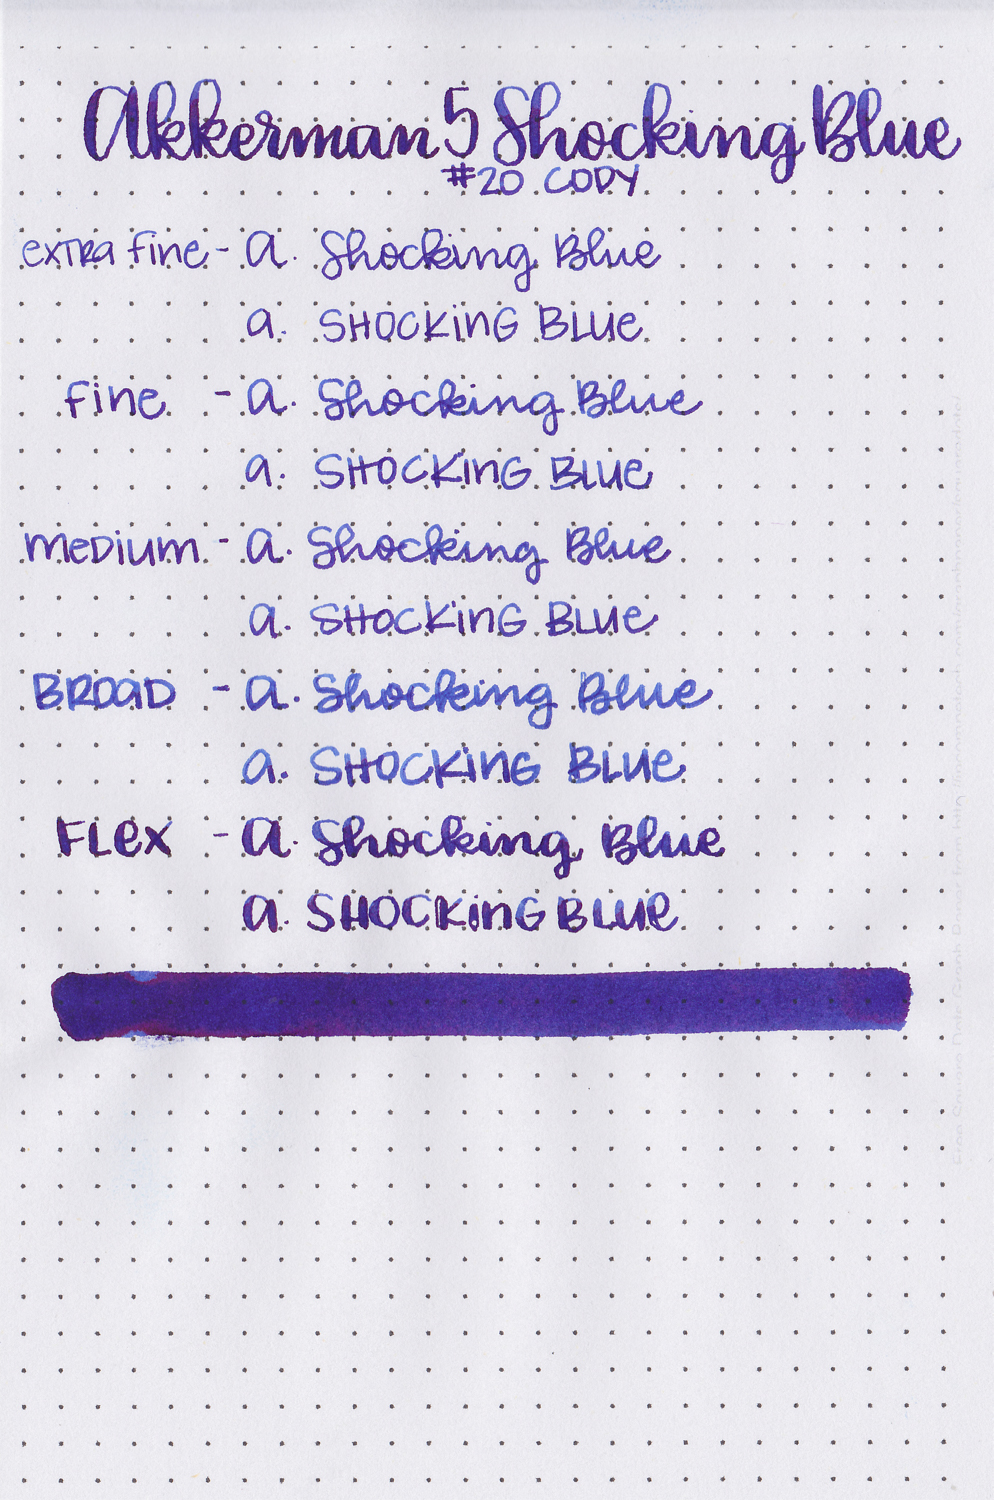 Akkerman 5 Shocking Blue
#20 CODY
extra fine - a. Shocking Blue
a. SHOCKING BLUE
Fine - a. Shocking Blue
a. SHOCKING BLUE
medium - a. Shocking Blue
a. SHOCKING BLUE
BROAD - a. Shocking Blue
a. SHOCKING BLUE
FLEX - a. Shocking Blue
a. SHOCKING BLUE